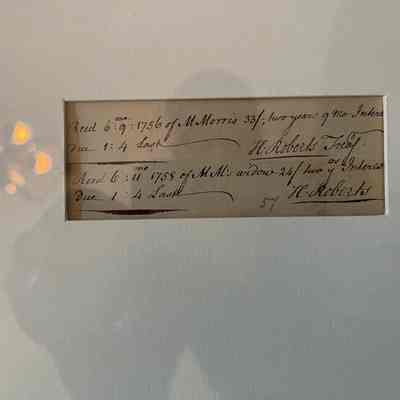 Recd 6:mo 9: 1756 of M Morris 33/, two years 9 mo Interes
Due 1: 4 Last H. Roberts Treasr.
Recd 6:mo 11: 1758 of M M: widow 24/ two yrs Interes
Due 1: 4 Last 57 H. Roberts